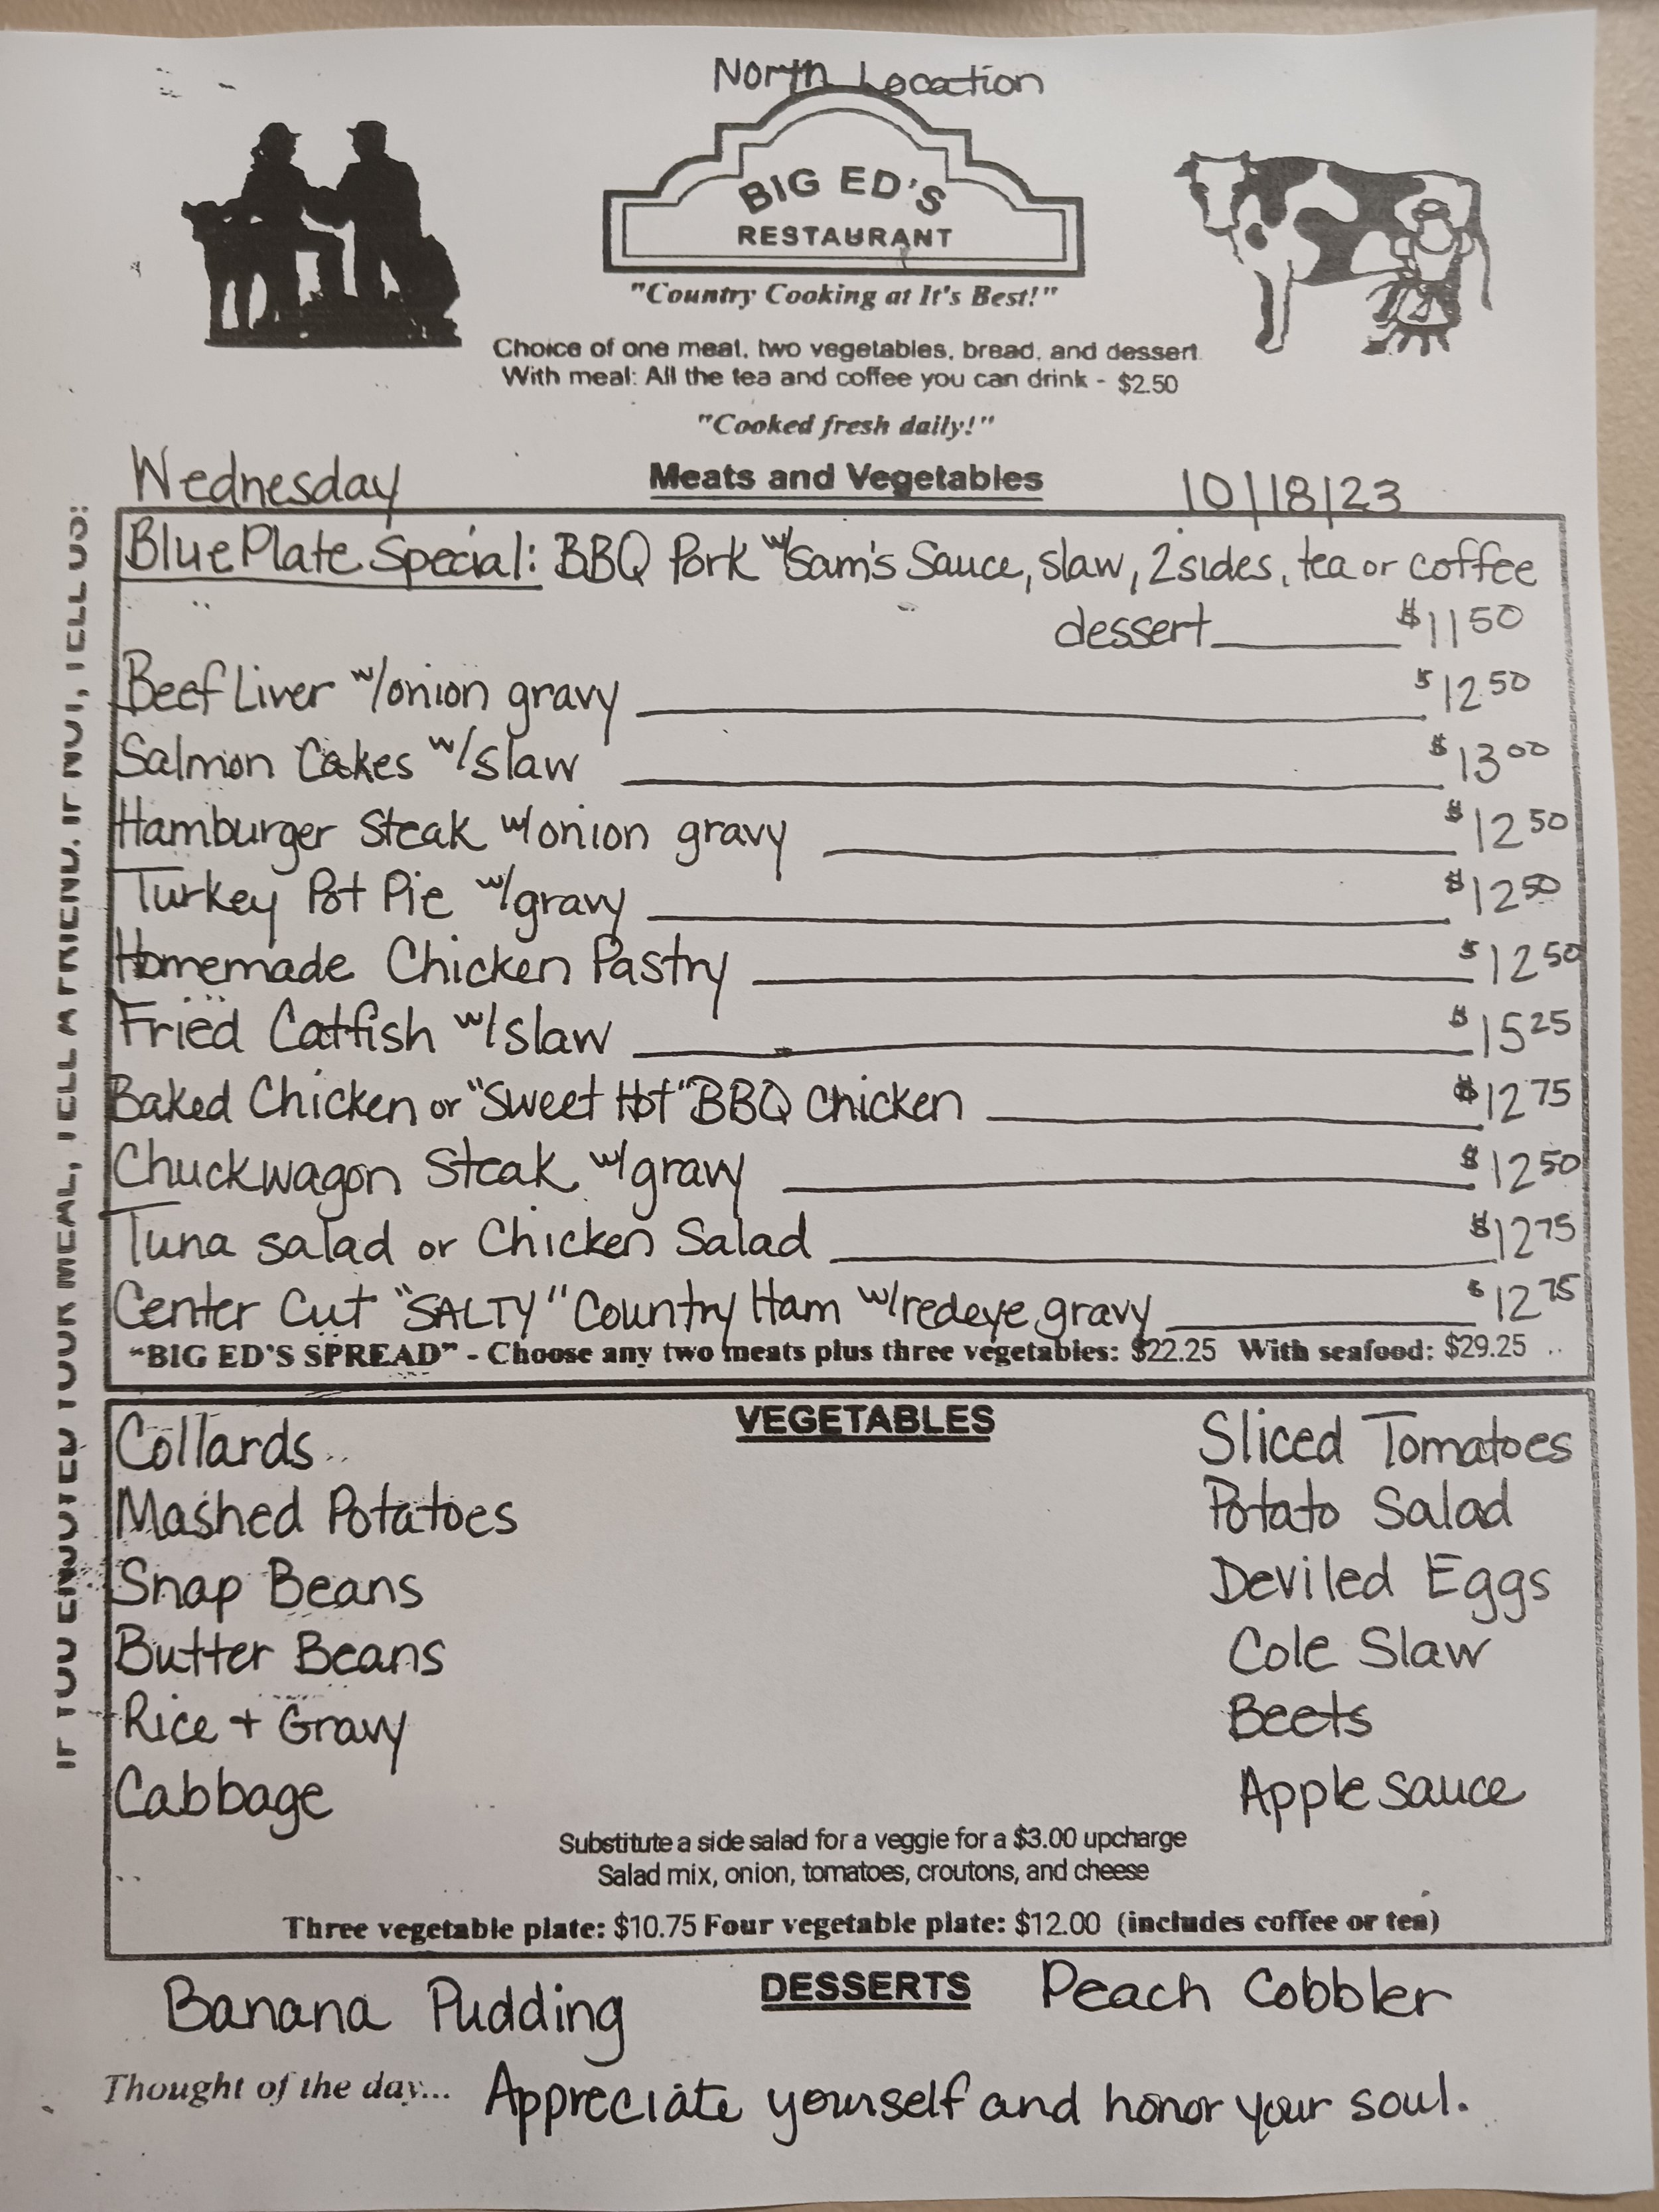 North Location
BIG ED'S
RESTAURANT
"Country Cooking at It's Best!"
Choice of one meat, two vegetables, bread, and dessert.
With meal: All the tea and coffee you can drink - $2.50
"Cooked fresh daily!"
Wednesday Meats and Vegetables 10/18/23
Blue Plate Special: BBQ Pork w/Sam's Sauce, slaw, 2 sides, tea or coffee
dessert $11 50
Beef Liver w/onion gravy $12.50
Salmon Cakes w/slaw $13 00
Hamburger Steak w/onion gravy $12 50
Turkey Pot Pie w/gravy $12 50
Homemade Chicken Pastry $12 50
Fried Catfish w/slaw $15 25
Baked Chicken or "Sweet Hot" BBQ Chicken $12 75
Chuckwagon Steak w/gravy $12 50
Tuna salad or Chicken Salad $12 75
Center Cut "SALTY" Country Ham w/redeye gravy $12 75
"BIG ED'S SPREAD" - Choose any two meats plus three vegetables: $22.25 With seafood: $29.25
VEGETABLES
Collards Sliced Tomatoes
Mashed Potatoes Potato Salad
Snap Beans Deviled Eggs
Butter Beans Cole Slaw
Rice + Gravy Beets
Cabbage Apple sauce
Substitute a side salad for a veggie for a $3.00 upcharge
Salad mix, onion, tomatoes, croutons, and cheese
Three vegetable plate: $10.75 Four vegetable plate: $12.00 (includes coffee or tea)
Banana Pudding DESSERTS Peach Cobbler
Thought of the day... Appreciate yourself and honor your soul.
IF YOU ENJOYED YOUR MEAL, TELL A FRIEND. IF NOT, TELL US!